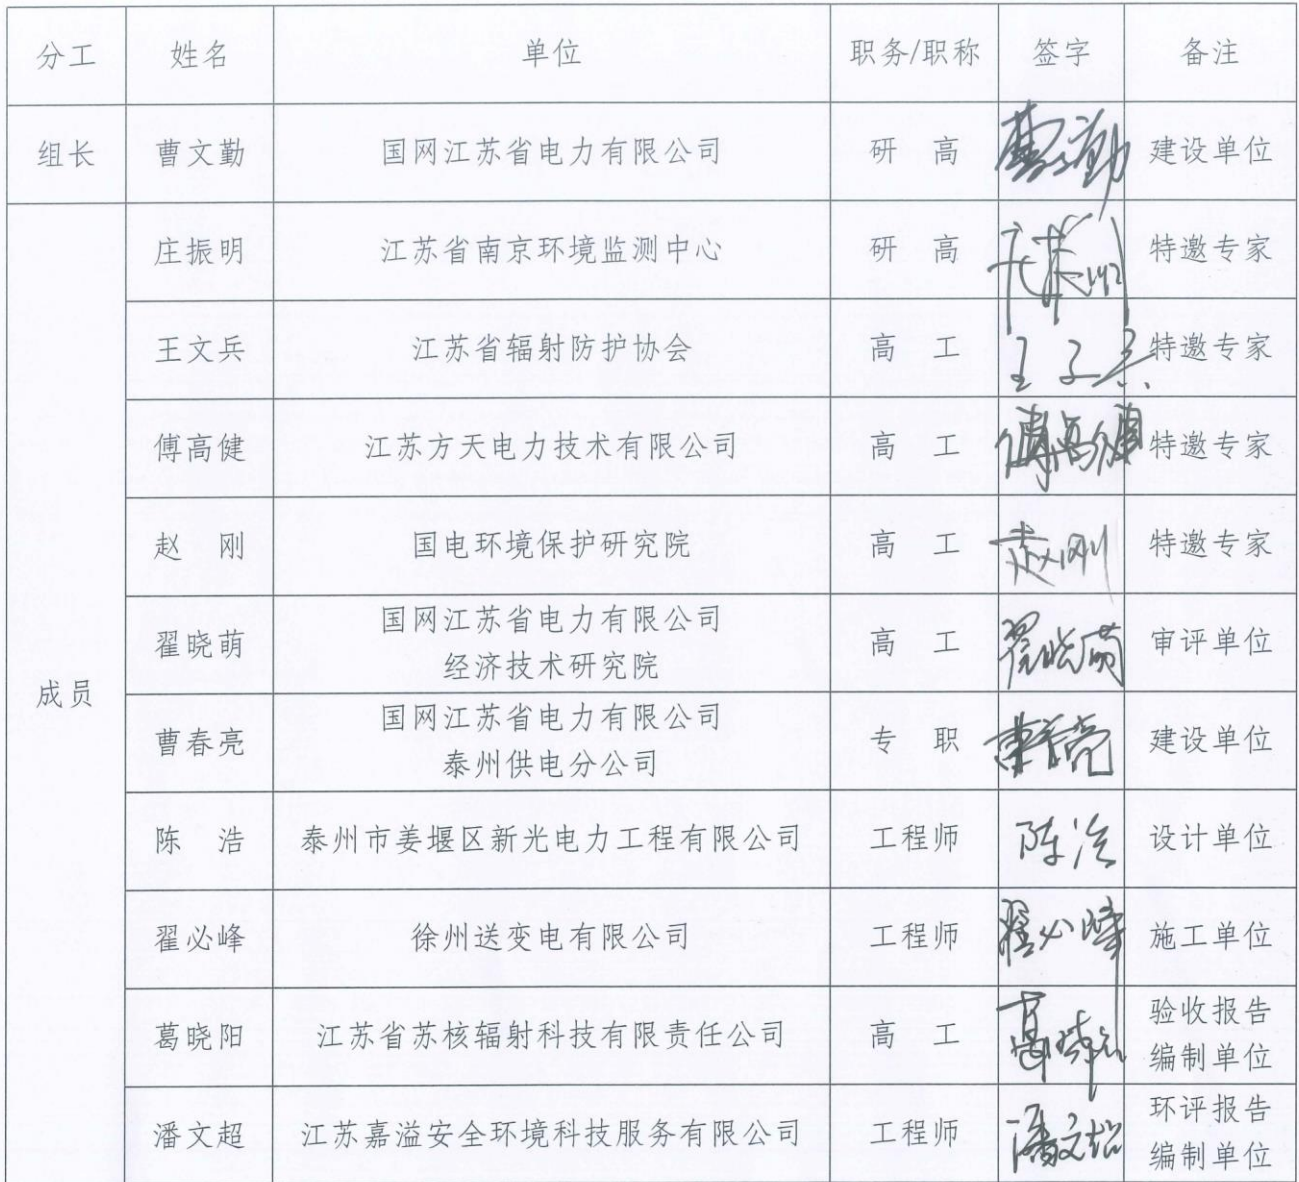 分工 姓名 单位 职务/职称 签字 备注
组长 曹文勤 国网江苏省电力有限公司 研 高 曹文勤 建设单位
成员
庄振明 江苏省南京环境监测中心 研 高 特邀专家
王文兵 江苏省辐射防护协会 高 工 王文兵 特邀专家
傅高健 江苏方天电力技术有限公司 高 工 傅高健 特邀专家
赵 刚 国电环境保护研究院 高 工 赵刚 特邀专家
翟晓萌 国网江苏省电力有限公司
经济技术研究院 高 工 翟晓萌 审评单位
曹春亮 国网江苏省电力有限公司
泰州供电分公司 专 职 曹春亮 建设单位
陈 浩 泰州市姜堰区新光电力工程有限公司 工程师 陈浩 设计单位
翟必峰 徐州送变电有限公司 工程师 翟必峰 施工单位
葛晓阳 江苏省苏核辐射科技有限责任公司 高 工 葛晓阳 验收报告
编制单位
潘文超 江苏嘉溢安全环境科技服务有限公司 工程师 潘文超 环评报告
编制单位